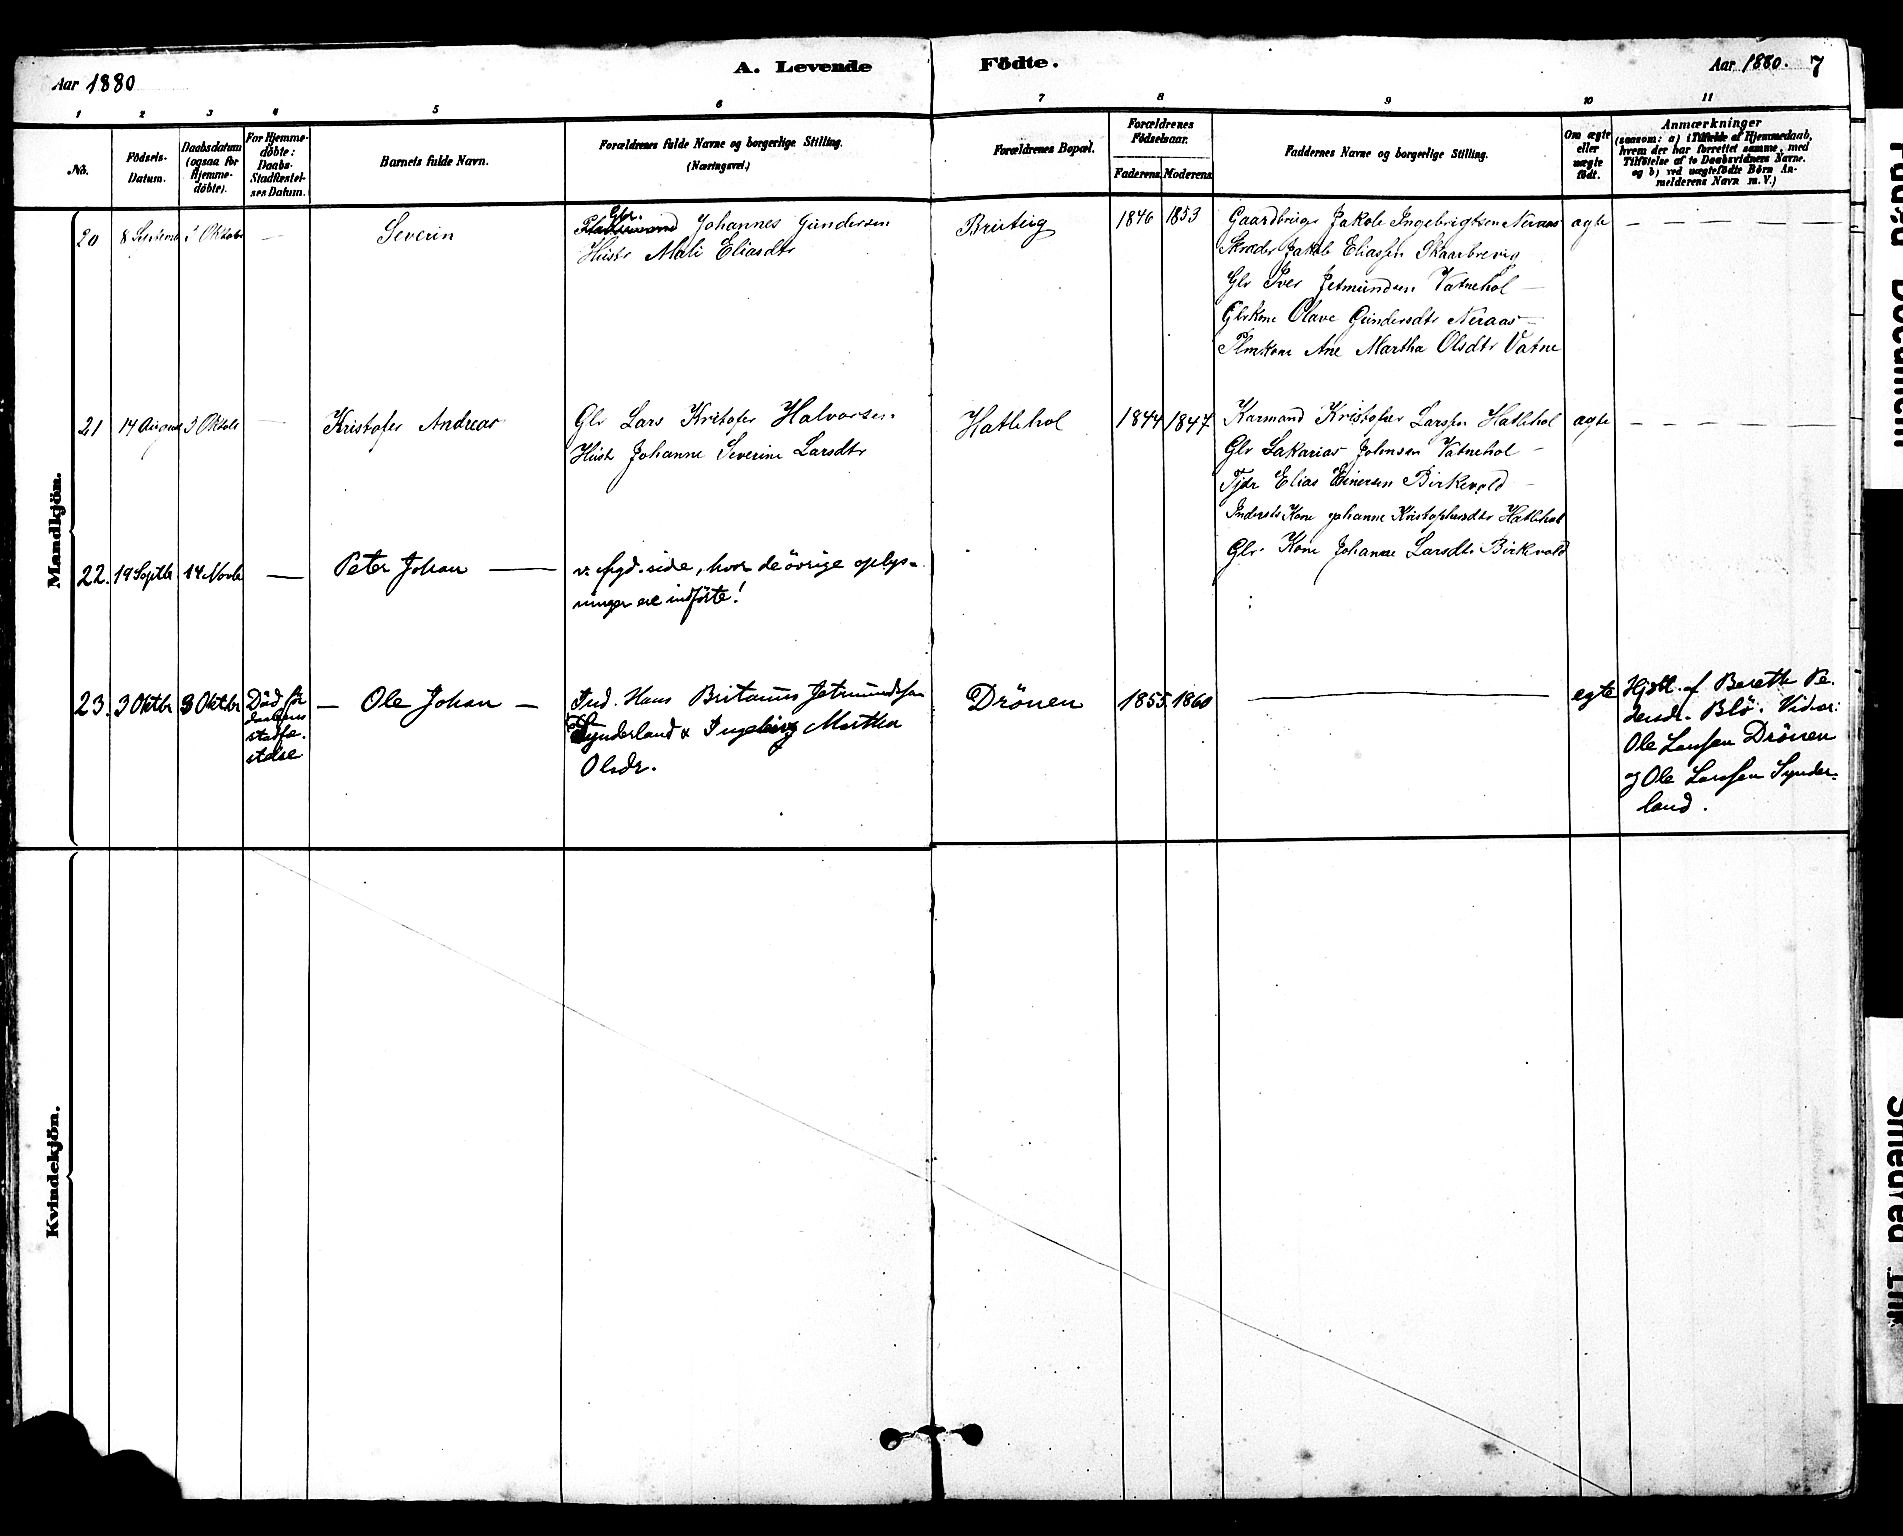 Aar 1880
A. Levende Födte.
Aar 1880. 7
1 2 3 4 5 6 7 8 9 10 11
No.
Födsels-Datum.
Daabsdatum (ogsaa for Hjemme-döbte).
For Hjemme-döbte: Daabs-Stadfæstel-ses Datum.
Barnets fulde Navn.
Forældrenes fulde Navne og borgerlige Stilling.
(Næringsvei.)
Forældrenes Bopæl.
Forældrenes Födselsaar.
Faderens. Moderens.
Faddernes Navne og borgerlige Stilling.
Om ægte eller uægte födt.
Anmærkninger
(saasom: a) i Tilfælde af Hjemmedaab,
hvem der har forrettet samme, med
Tilföielse af to Daabsvidners Navne.
og b) ved uægtefödte Börn An-
melderens Navn m. V.)
Mandkjön.
20 8 Septemb Oktobr — Severin
Gbr. Johannes Gundersen
Hustr Mali Eliasdtr
1846 1853
Gaardbruger Jakob Ingebrigtsen Neraas
Skræder Jakob Eliassen Skaarbrevig
Gbr Iver Jetmundsen Vatnehol —
Gbrkone Olave Gundersdtr Neraas —
Plmkone Ane Martha Olsdtr Vatne
ægte — — — —
21 14 August 3 Oktobr — Kristofer Andreas
Gbr Lars Kristofer Halvorsen
Hustr Johanne Severine Larsdtr
Hatlehol
1844 1847
Karmand Kristofer Larssen Hatlehol
Gbr Sakarias Johnsen Vatnehol —
Tjdr Elias Einersen Birkevold —
Indersts Kone Johanne Kristophersdtr Hatlehol
Gbr. Kone Johanne Larsdtr Birkevold
ægte — — — — — —
22. 19 Septbr 14 Novbr — Peter Johan —
v. fgd. side, hvor de övrige oplys-
ninger ere indförte!
23. 3 Oktbr 3 Oktbr
Död för
daabens
stadfæ-
stelse
— Ole Johan —
Ind. Hans Britanus Jetmundssen
Synderland & Ingeborg Martha
Olsdr.
Drönen
1855. 1860
—
egte
Hjdbt. af Berethe Pe-
dersdr. Blö. Vidner:
Ole Larssen Drönen
og Ole Larssen Synder-
land.
Kvindekjön.